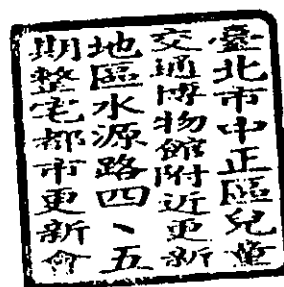 臺北市中正區兒童
交通博物館附近更新
地區水源路四、五
期整宅都市更新會